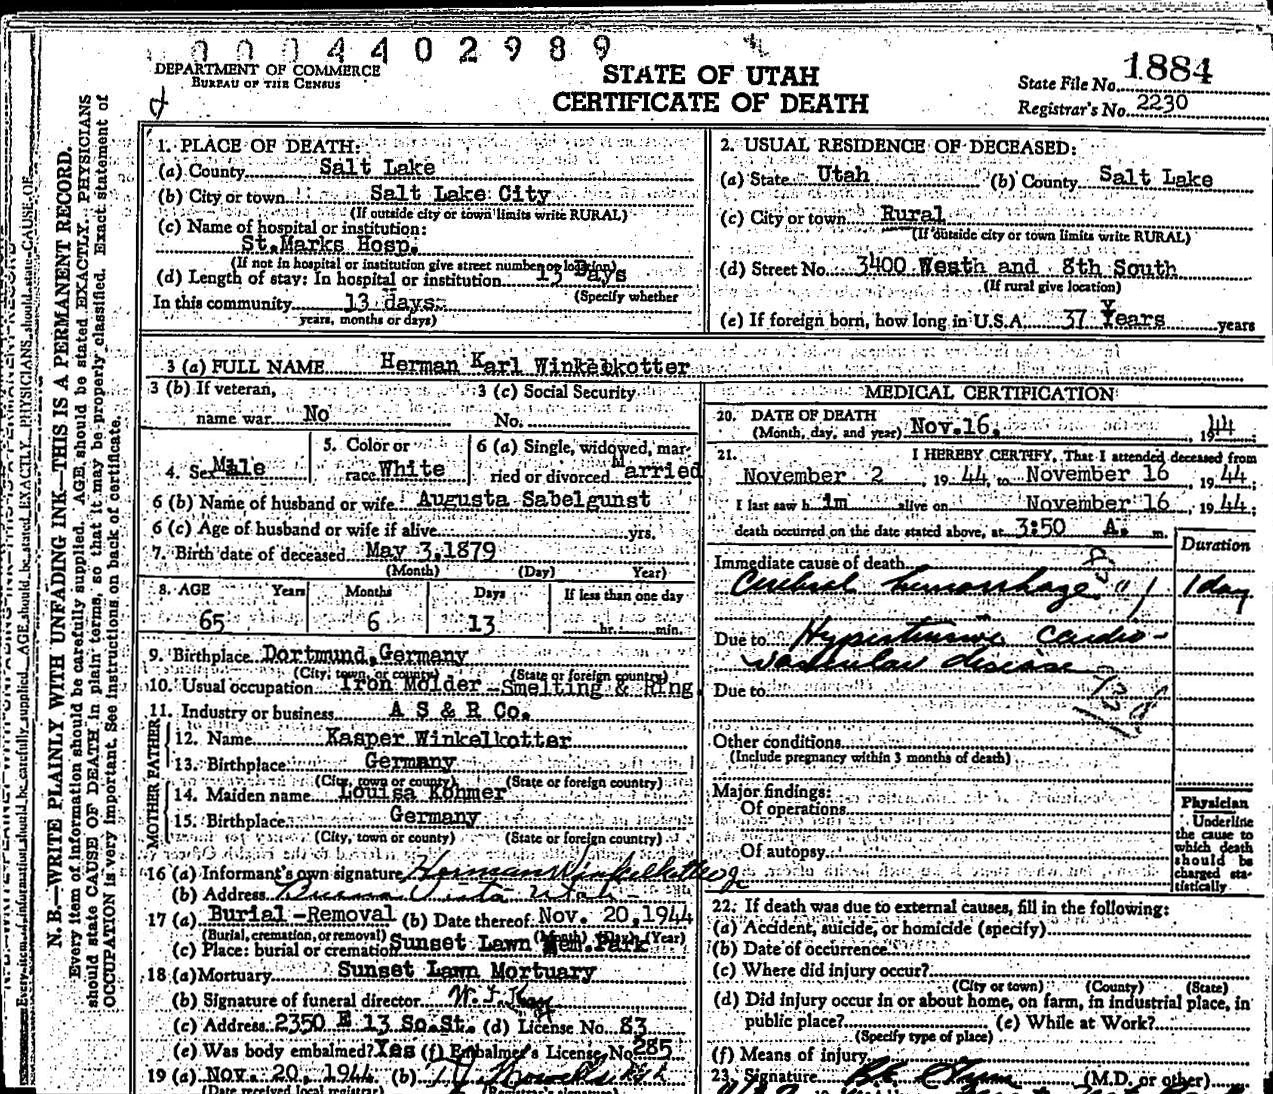 0004402989
DEPARTMENT OF COMMERCE
BUREAU OF THE CENSUS
STATE OF UTAH
CERTIFICATE OF DEATH
State File No. 1884
Registrar's No. 2230
N. B.—WRITE PLAINLY WITH UNFADING INK—THIS IS A PERMANENT RECORD.
Every item of information should be carefully supplied. AGE should be stated EXACTLY. PHYSICIANS
should state CAUSE OF DEATH in plain terms, so that it may be properly classified. Exact statement of
OCCUPATION is very important. See instructions on back of certificate.
1. PLACE OF DEATH:
(a) County Salt Lake
(b) City or town Salt Lake City
(If outside city or town limits write RURAL)
(c) Name of hospital or institution:
St.Marks Hosp.
(If not in hospital or institution give street number or location)
(d) Length of stay: In hospital or institution 13 Days
(Specify whether
In this community 13 days
years, months or days)
2. USUAL RESIDENCE OF DECEASED:
(a) State Utah (b) County Salt Lake
(c) City or town Rural
(If outside city or town limits write RURAL)
(d) Street No. 3400 Westh and 8th South
(If rural give location)
(e) If foreign born, how long in U.S.A. 37 Years years
3 (a) FULL NAME Herman Karl Winkelkotter
3 (b) If veteran,
name war No
3 (c) Social Security
No.
4. Sex Male
5. Color or
race White
6 (a) Single, widowed, mar-
ried or divorced Married
6 (b) Name of husband or wife Augusta Sabelgunst
6 (c) Age of husband or wife if alive yrs.
7. Birth date of deceased May 3,1879
(Month) (Day) Year)
8. AGE Years Months Days If less than one day
65 6 13 hr. min.
9. Birthplace Dortmund,Germany
(City, town, or county) (State or foreign country)
10. Usual occupation Iron Molder -Smelting & Rfng.
11. Industry or business A S & R Co.
FATHER
12. Name Kasper Winkelkotter
13. Birthplace Germany
(City, town or county) (State or foreign country)
MOTHER
14. Maiden name Louisa Kohmer
15. Birthplace Germany
(City, town or county) (State or foreign country)
16 (a) Informant's own signature Herman Winkelkotter Jr
(b) Address Buena Vista Utah
17 (a) Burial -Removal (b) Date thereof Nov. 20,1944
(Burial, cremation, or removal) (Month) (Day) (Year)
(c) Place: burial or cremation Sunset Lawn Mem.Park
18 (a) Mortuary Sunset Lawn Mortuary
(b) Signature of funeral director
(c) Address 2350 E 13 So.St. (d) License No. 83
(e) Was body embalmed? Yes (f) Embalmer's License No. 285
19 (a) Nov. 20, 1944 (b)
(Date received local registrar) (Registrar's signature)
MEDICAL CERTIFICATION
20. DATE OF DEATH
(Month, day, and year) Nov.16, 1944
21. I HEREBY CERTIFY, That I attended deceased from
November 2, 1944, to November 16, 1944;
I last saw him alive on November 16, 1944;
death occurred on the date stated above, at 3:50 A. m.
Duration
Immediate cause of death
Cerebral hemorrhage 1 day
Due to Hypertensive Cardio-
vascular disease
Due to
Other conditions
(Include pregnancy within 3 months of death)
Major findings:
Of operations
Of autopsy
Physician
Underline
the cause to
which death
should be
charged sta-
tistically
22. If death was due to external causes, fill in the following:
(a) Accident, suicide, or homicide (specify)
(b) Date of occurrence
(c) Where did injury occur?
(City or town) (County) (State)
(d) Did injury occur in or about home, on farm, in industrial place, in
public place? (e) While at Work?
(Specify type of place)
(f) Means of injury
23. Signature (M.D. or other)